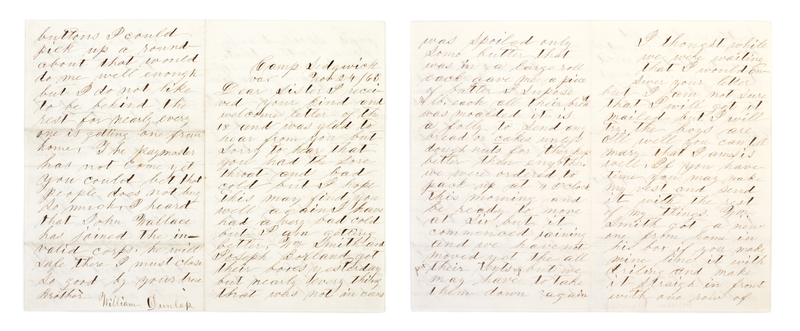 Camp Sedgwick
va Nov 24 / 63
Dear Sister I recei-
ved your kind and
welcome letter of the
and was glad to
hear from you but
sorry to hear that
you had the sore
throat and bad
cold but I hope
this may find you
well again I have
had a very bad cold
but I am getting
better, Wm Smith and
Joseph Borland got
their boxes yesterday
but nearly every thing
that was not in cans
was spoiled only
some butter that
was in a large roll
each gave me a piece
of butter I supose
bread all their bred
was moalded it is
a folly to send on
bread or cake unless
dough nuts or
better then enythin
we were ordered to
pack up at 4 oclock
this morning and
be ready to move
at six but it
commenced raining
and we have not
moved yet the all
their but we
may have to take
them down again
I thought while
we were waiting
that I would an-
swer your letter
but I am not sure
that I will get it
mailed but I will
try the boys are
all well you can tell
mary that I am is
well. If you have
time you may make
my vest and send
it with the rest
of my things. Wm
Smith got a new
one from home in
his box if you make
mine line it with
driling and make
it straigh in front
with one row of
buttons I could
pick up a round
about that would
do me well enough
but I do not like
to be behind the
rest for nearly every
one is getting one from
home, The paymaster
has not come yet
you could bet that
people does not buy
so much, I heard
that John Wallace
has joined the in-
valid corps. he will
safe there I must close
so good by your true
brother
William Dunlap